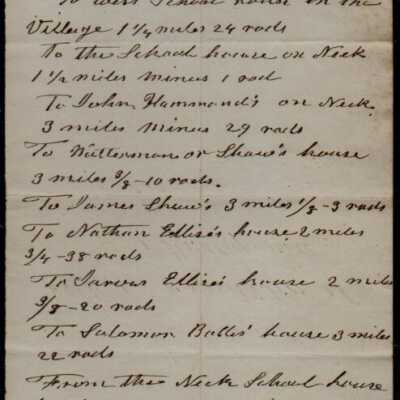 To West School house in the
Village 1 1/4 miles 24 rods
To the School house on Neck
1 1/2 miles minus 1 rod
To John Hammond's on Neck.
3 miles minus 29 rods
To Witterman or Shaw's house
3 miles 3/8-10 rods.
To James Shaw's 3 miles 1/8-3 rods
To Nathan Ellise's house 2 miles
3/4-38 rods
To Jarvus Ellise's house 2 miles
3/8-20 rods
To Salomon Bolls' house 3 miles
22 rods
From the Neck School house